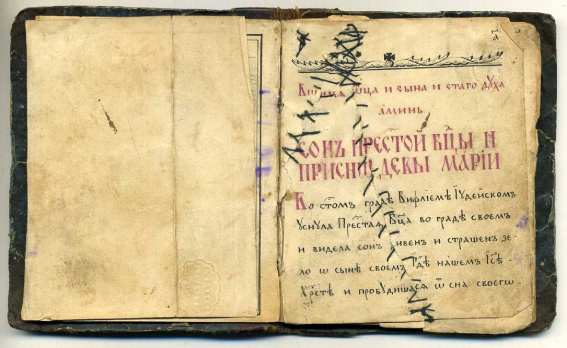 Во имѧ ѿца и сына и стаго дꙋха
аминь.
СОНЪ ПРЕСТОЙ БЦЫ И
ПРИСНО ДЕВЫ МАРІИ
Во стомъ градѣ Виѳліемѣ Іꙋдейскомъ
уснула Престаѧ Бца во градѣ своемъ
и видела сонъ дивенъ и страшенъ зе-
ло ѡ сынѣ своемъ Гдѣ нашемъ Ісѣ
Хрстѣ и пробꙋдишасѧ ѿ сна своегѡ